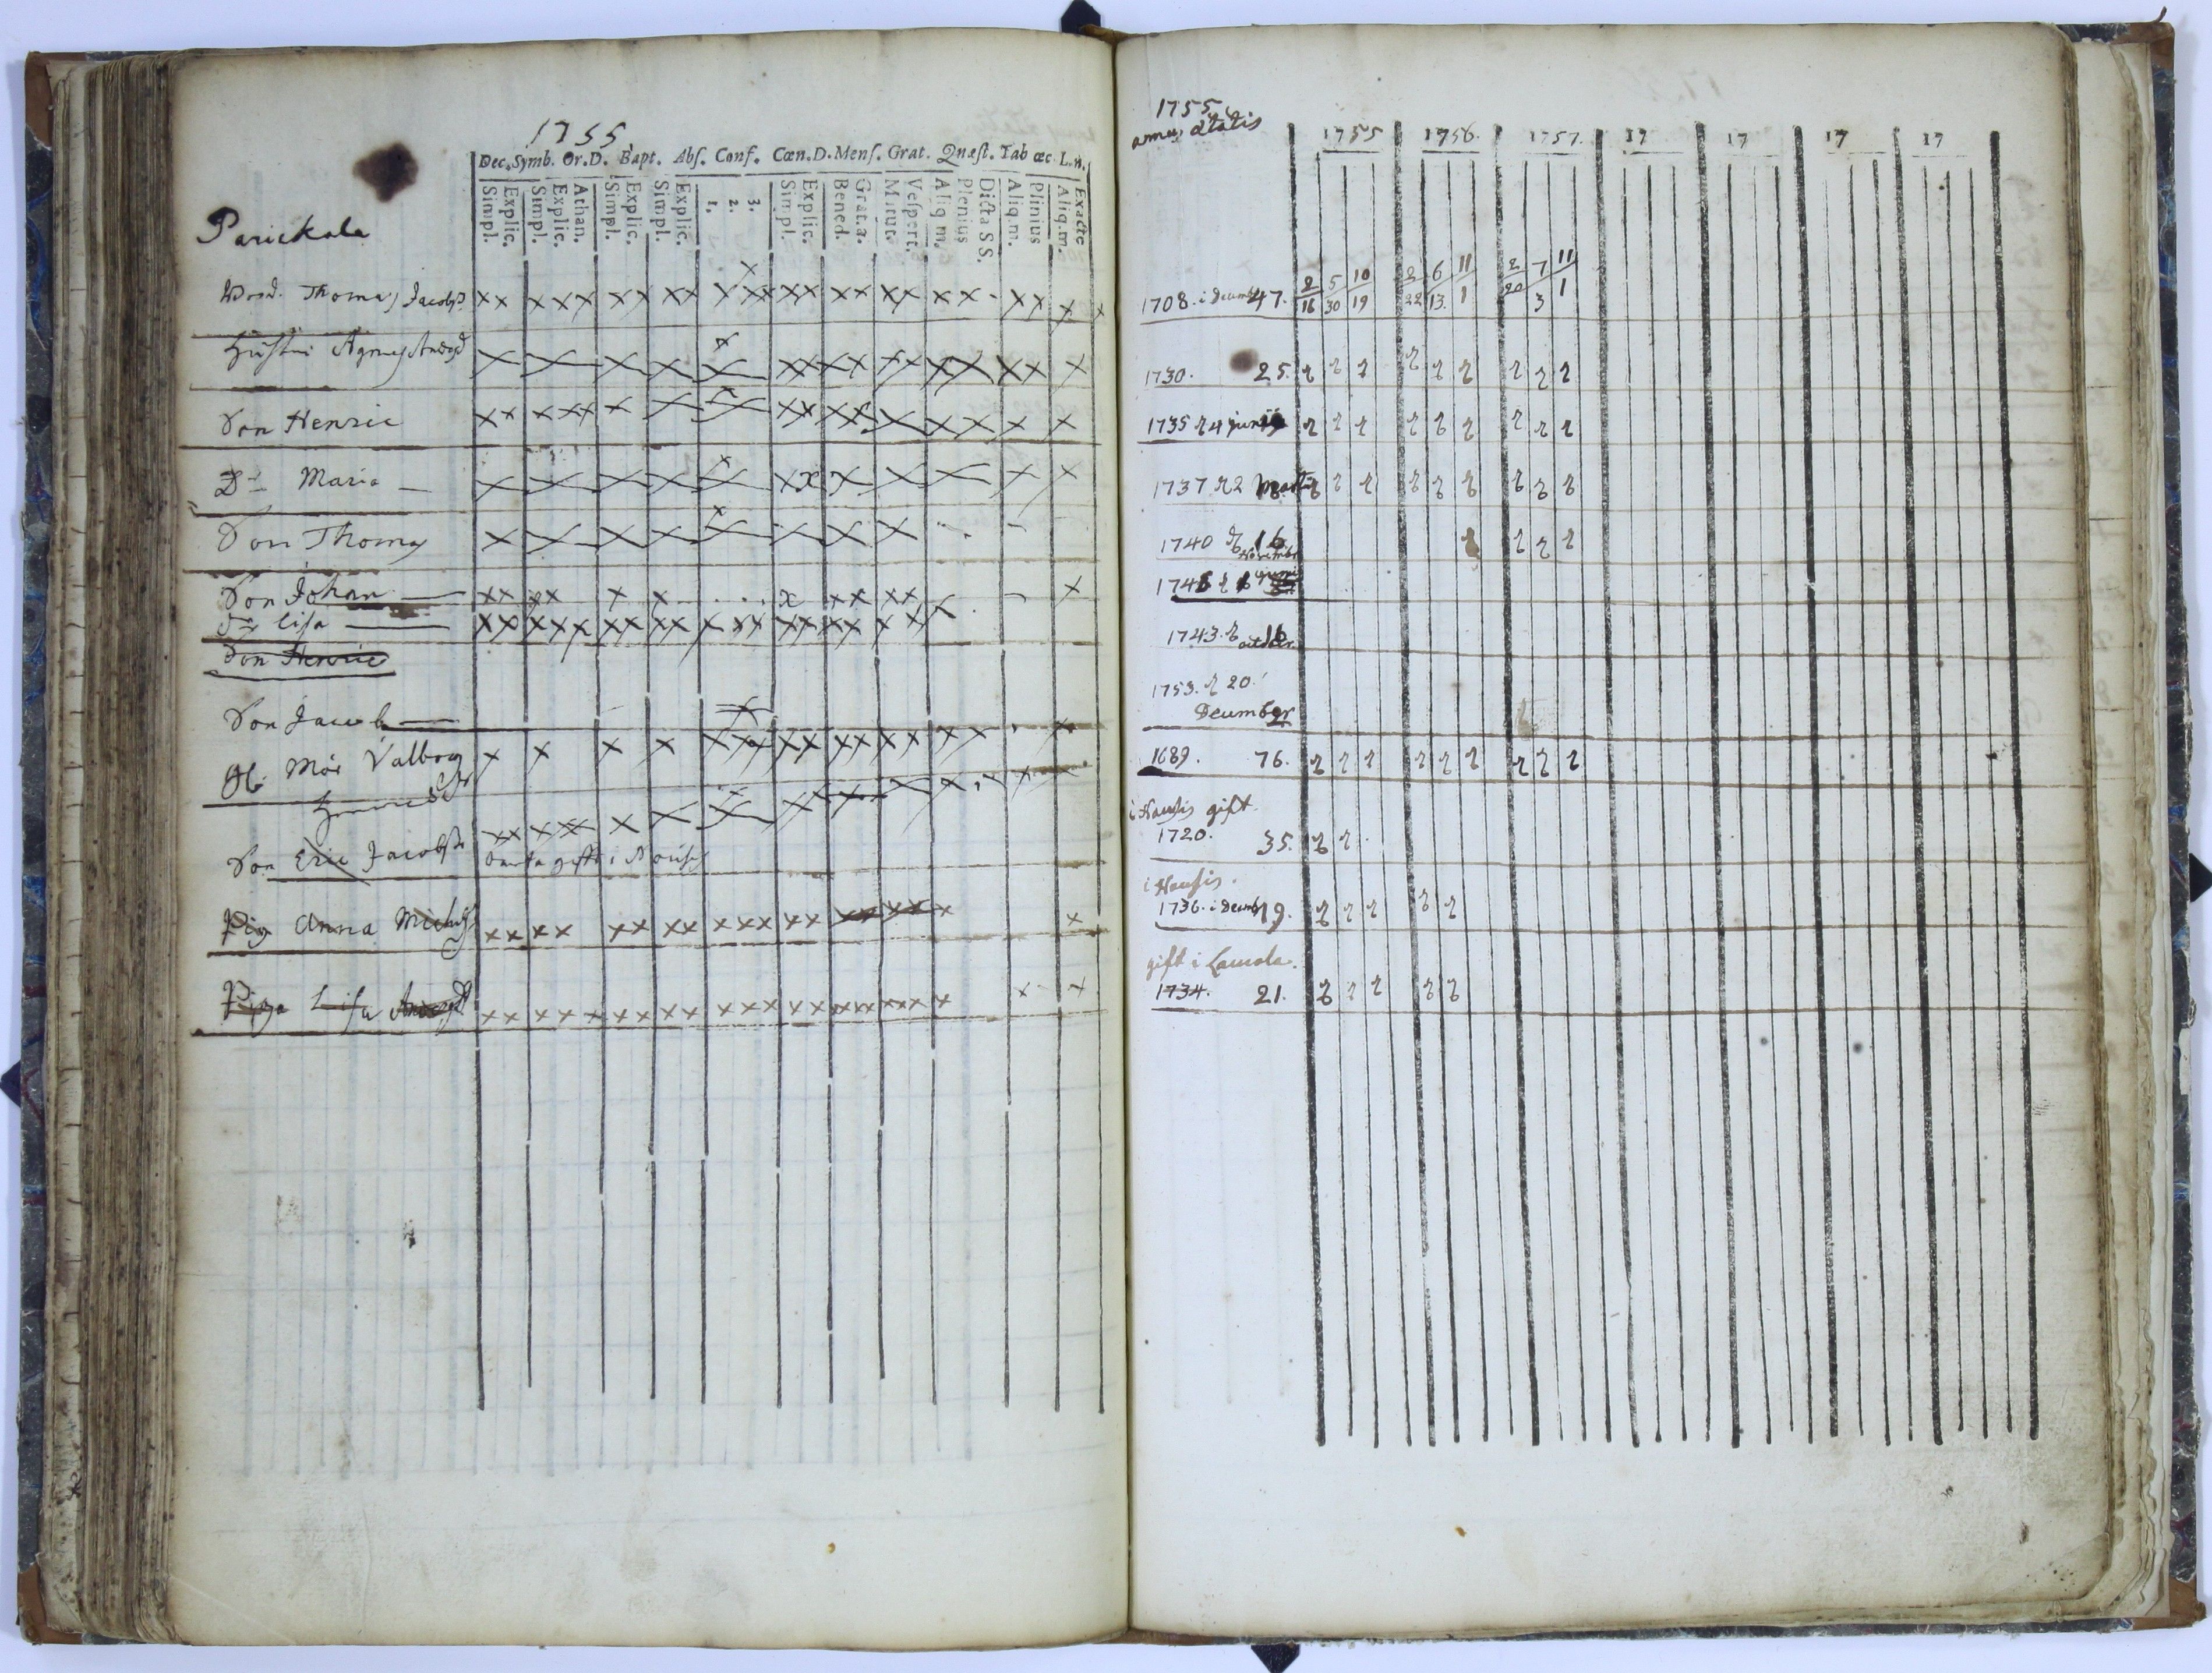 1755
Dec. Symb. Or. D. Bapt. Abſ. Conf. Cœn. D. Menſ. Grat. Quæſt. Tab œc L. n.
Simpl. Explic. Simpl. Explic. Athan. Simpl. Explic. Simpl. Explic. 1. 2. 3. Simpl. Explic. Bened. Grat. a. Matut. Veſpert. Aliq. m. Plenius Dicta S S. Aliq. m. Plinius Aliq. m. Exacte
Parickala
Thomas Jacobs
Hustru Agnes Andsd
Son Henric
Dr Maria
Son Thomas
Son Johan
Lisa
Son Henric
Son Jacob
Mor Valborg
Son Eric Jacobs
Pig Anna Michels
Piga Lisa
1755
annus ætatis
1755 1756. 1757. 17 17 17 17
2 5 10 2 6 11 2 7 11
1708. i Decemb 47. 16 30 19 22 13. 1 20 3 1
1730. 25.
1735 24 junii
1737 22 Mart
1740 16
Novembr
1743. 16
octobr.
1753. 20
December
1689. 76.
i Nausis gift.
1720. 35.
i Nausis.
1736. i Decemb 19.
gift i Lamola.
1734. 21.